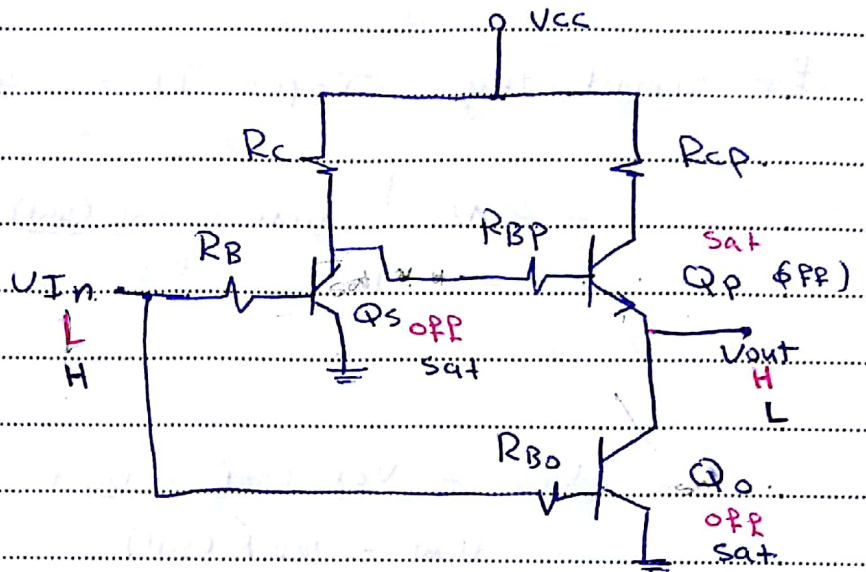 VCC
RC
RCP.
RB
RBP
Sat
VIn
QP (off)
QS off
L
H
Sat
Vout
H
L
RBO
QO
off
Sat